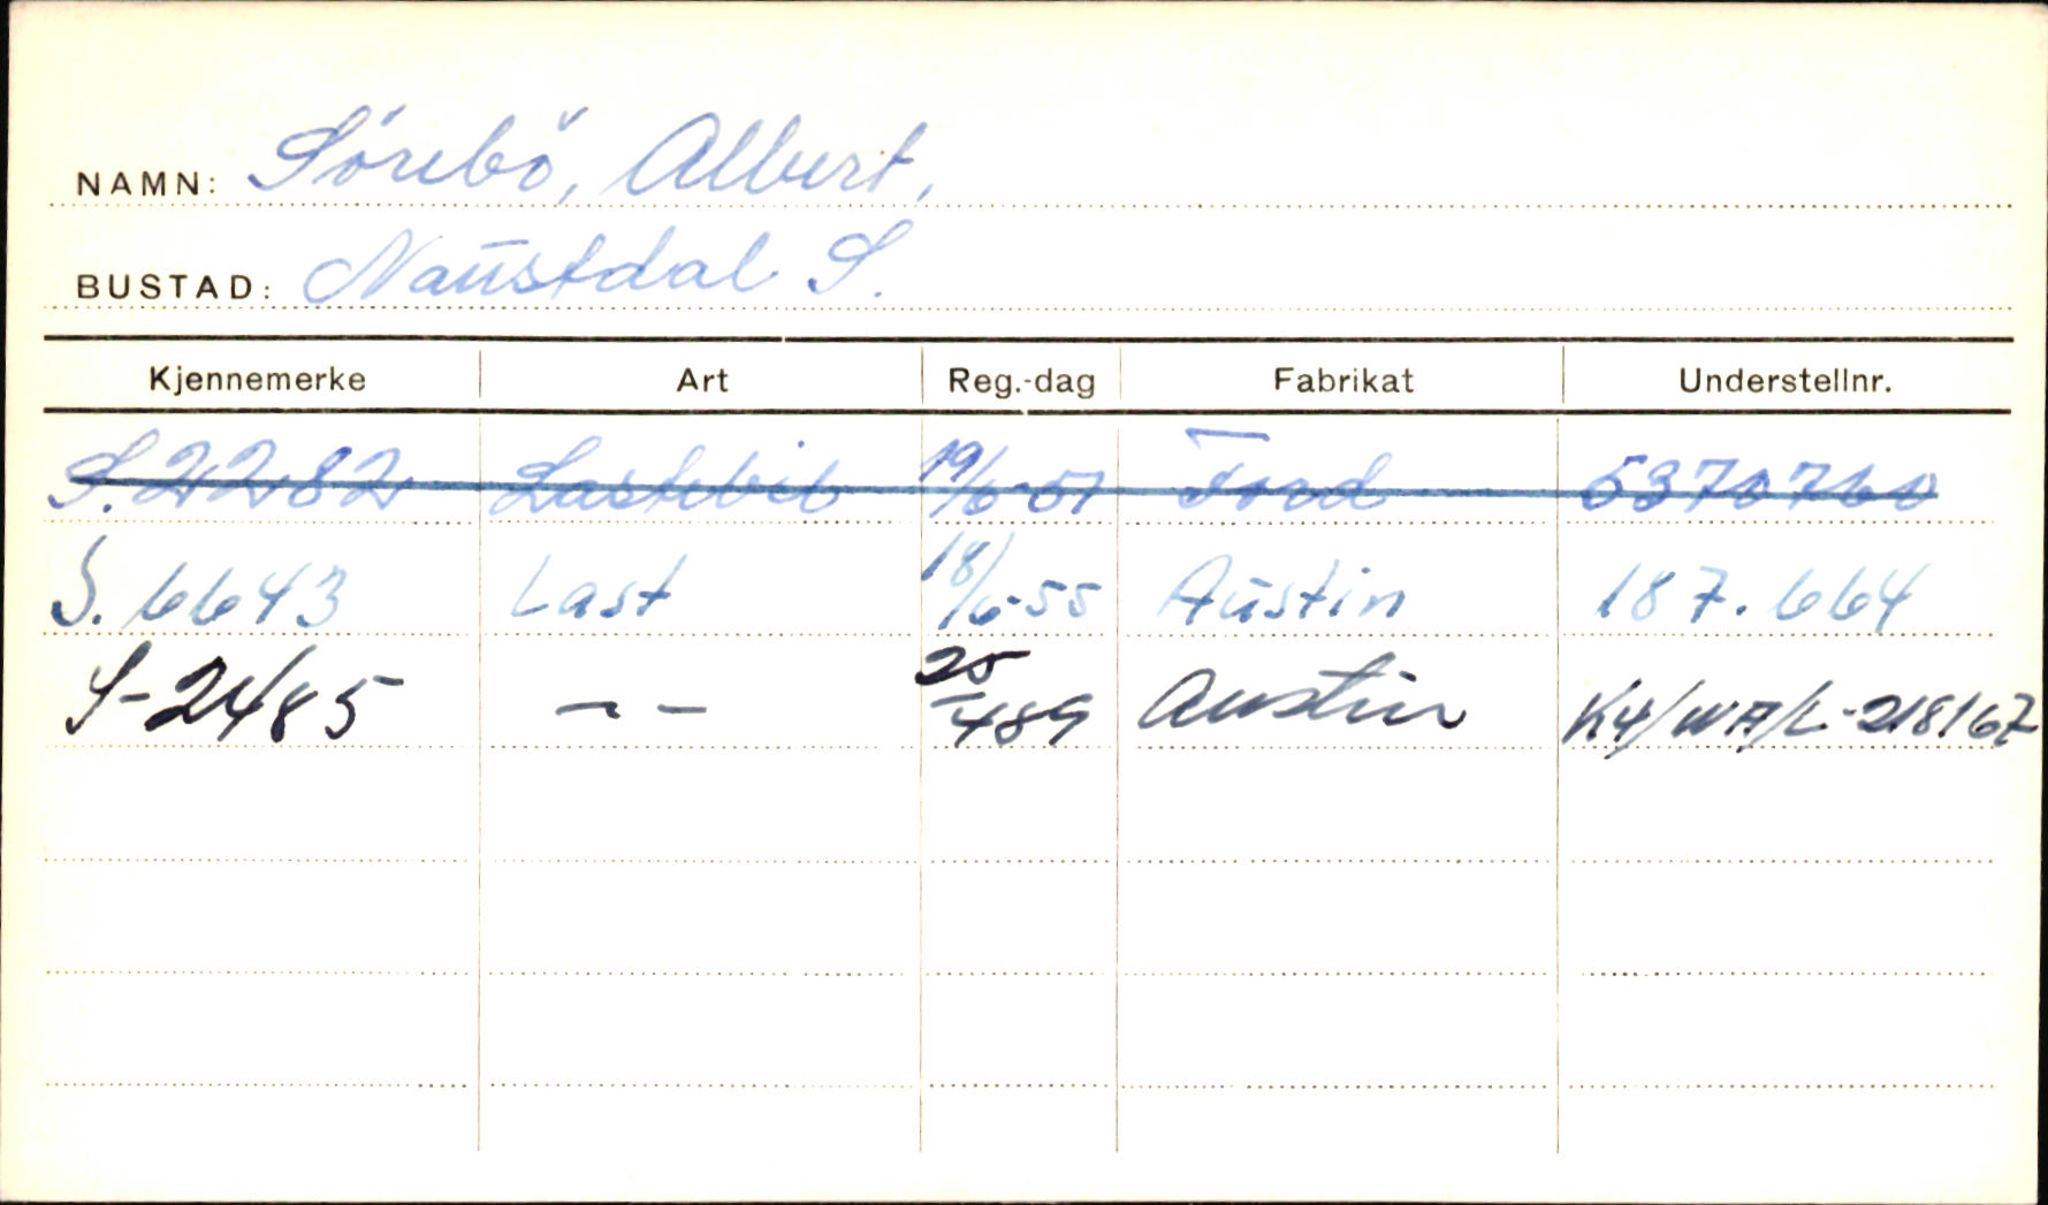 NAMN: Sörebö, Albert,
BUSTAD: Naustdal S.
Kjennemerke Art Reg.-dag Fabrikat Understellnr.
S.2282 Lastebil 19/6-51 Ford 5370760
S.6643 Last 18/6-55 Austin 187.664
S-2485 -- 25/4 89 Austin K4/WA/L-218167